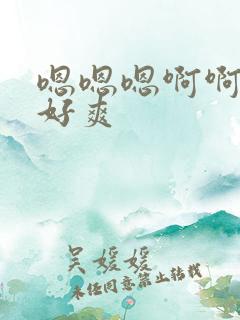 嗯嗯嗯啊啊
好爽
吴媛媛
未经同意禁止转载